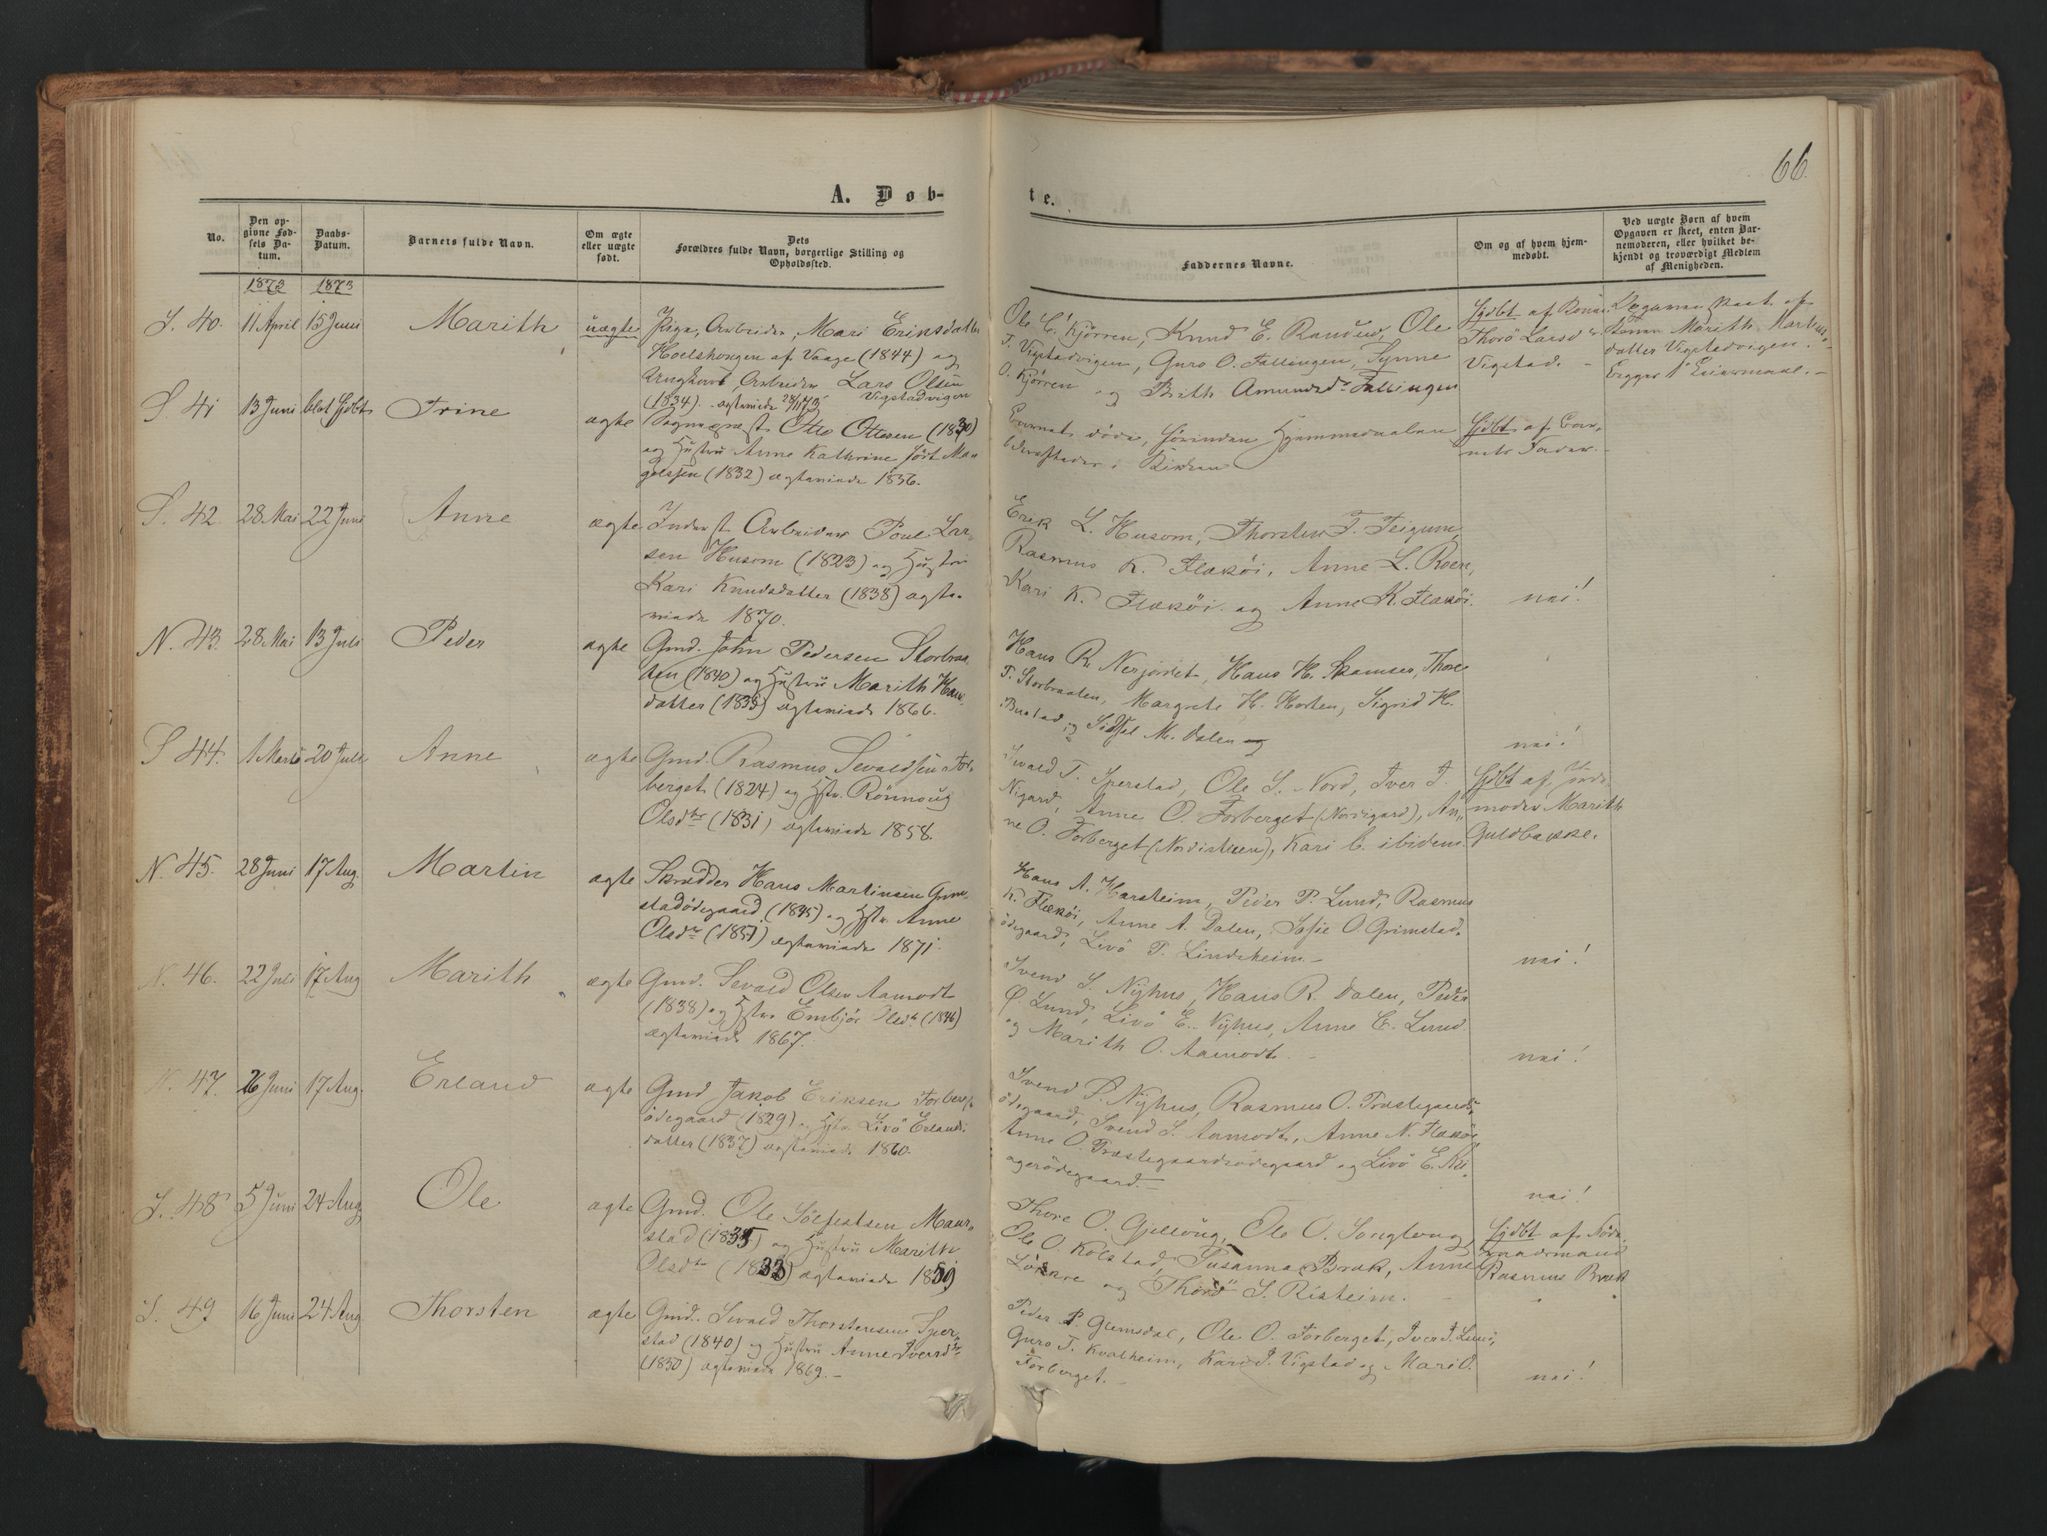 66.
A. Døb-
te.
No.
Den op-
givne Fød-
sels Da-
tum.
Daabs-
Datum.
Barnets fulde Navn.
Om ægte
eller uægte
født.
Dets
Forældres fulde Navn, borgerlige Stilling og
Opholdssted.
Faddernes Navne.
Om og af hvem hjem-
medøbt.
Ved uægte Børn af hvem
Opgaven er skeet, enten Bar-
nemoderen, eller hvilket be-
kjendt og troværdigt Medlem
af Menigheden.
1872 1873
S. 40. 11 April 15 Juni Marith uægte
Pige, Arbeider, Mari Eriksdatter
af Vaage (1844) og
Ungkarl Arbeider Lars Olsen
(1834). Vigstadvigen
Ole C. Kjørren, Knud E. Randen, Ole
T. Vigstadvigen, Guro O. Fallingen, Synne
O. Kjørren og Brith Amundsdr Fallingen
Hjdbt af Kone
Thorö Larsdr
Vigstad. -
Marith
datter Vigstadvigen.
S. 41 13 Juni blot Hjdbt Trine ægte
Sogneprest Otto Ottesen (1830)
og Hustru Anne Kathrine født Ma-
gelssen (1832) ægteviede 1856.
Barnet døde, førinden Hjemmedaaben
bekræftedes i Kirken
Hjdbt af Bar-
nets Fader.
S. 42. 28 Mai 22 Juni Anne ægte
Inderst Arbeider Poul Lar-
sen Husom (1823) og Hustru
Kari Knudsdatter (1838) ægte-
viede 1870.
Erik L. Husom, Thorsten T. Teigum,
Rasmus K. Flækøi, Anne L. Roen,
Kari K. Flækøi og Anne K. Flækøi.
nei!
N. 43. 28 Mai 13 Juli Peder ægte
Gmd. John Pedersen Storbraa-
ten (1840) og Hustru Marith Hans-
datter (1839) ægteviede 1866.
Hans R. Nerjordet, Hans H. Skamser, Thore
T. Storbraaten, Margrete H. Horten, Sigrid H.
Bustad, og Sidsel M. Dalen og
nei!
S. 44. 1 Marts 20 Juli Anne ægte
Gmd. Rasmus Sevaldsen For-
berget (1824) og Hstr. Rönnoug
Olsdtr (1831) ægteviede 1858.
Sivald T. Sperstad, Ole S. Nord, Iver I.
Nigard, Anne O. Forberget (Nordigard), An-
ne O. Forberget (Nordistuen), Kari C. ibidem.
Hjdbt af Jorde-
moder Marith
Guldbakke.
N. 45. 28 Juni 17 Aug. Martin ægte
Skrædder Hans Martinsen Grim-
stadødegaard (1845) og Hstr. Anne
Olsdr (1851) ægteviede 1871.
Hans A. Harsheim, Peder P. Lund, Rasmus
K. Flækøi, Anne A. Dalen, Sofie O. Grimstad-
ødegaard, Livö P. Lindsheim. -
nei!
N. 46. 22 Juli 17 Aug Marith ægte
Gmd. Sevald Olsen Aamodt
(1838) og Hstr Embjør Olsdtr (1846)
ægteviede 1867.
Svend S. Nyhus, Hans R. Dalen, Peder
P. Lund, Livö E. Nyhus, Anne C. Lund
og Marith O. Aamodt. -
nei!
N. 47. 26 Juni 17 Aug. Erland ægte
Gmd Jakob Eriksen Forbergs-
ödegaard (1829) og Hstr Livö Erlands-
datter (1837) ægteviede 1860.
Svend S. Nyhus, Rasmus O. Præstegaards-
ödegaard, Svend S. Aamodt, Anne N. Flækøi,
Anne O. Præstegaardsödegaard og Livö E.
ödegaard. -
nei!
S. 48 5 Juni 24 Aug Ole ægte
Gmd. Ole Sölfestsen Maur-
stad (1835) og Hustru Marith
Olsdtr (1833) ægteviede 1859
Thore O. Gjellöug, Ole O.
Ole O. Kolstad, Susanna Brak, Anne
Løkre og Thorö S. Risheim. -
Hjdbt af
Rasmus Brak
S. 49 16 Juni 24 Aug Thorsten ægte
Gmd. Sevald Thorstensen Sper-
stad (1840) og Hustru Anne Iversdtr
(1850) ægteviede 1869. -
Peder P. Glemsdal, Ole O. Forberget, Iver I. Lund,
Guro T. Kvalheim, Kari I. Vigstad og Mari O.
Forberget. -
nei!